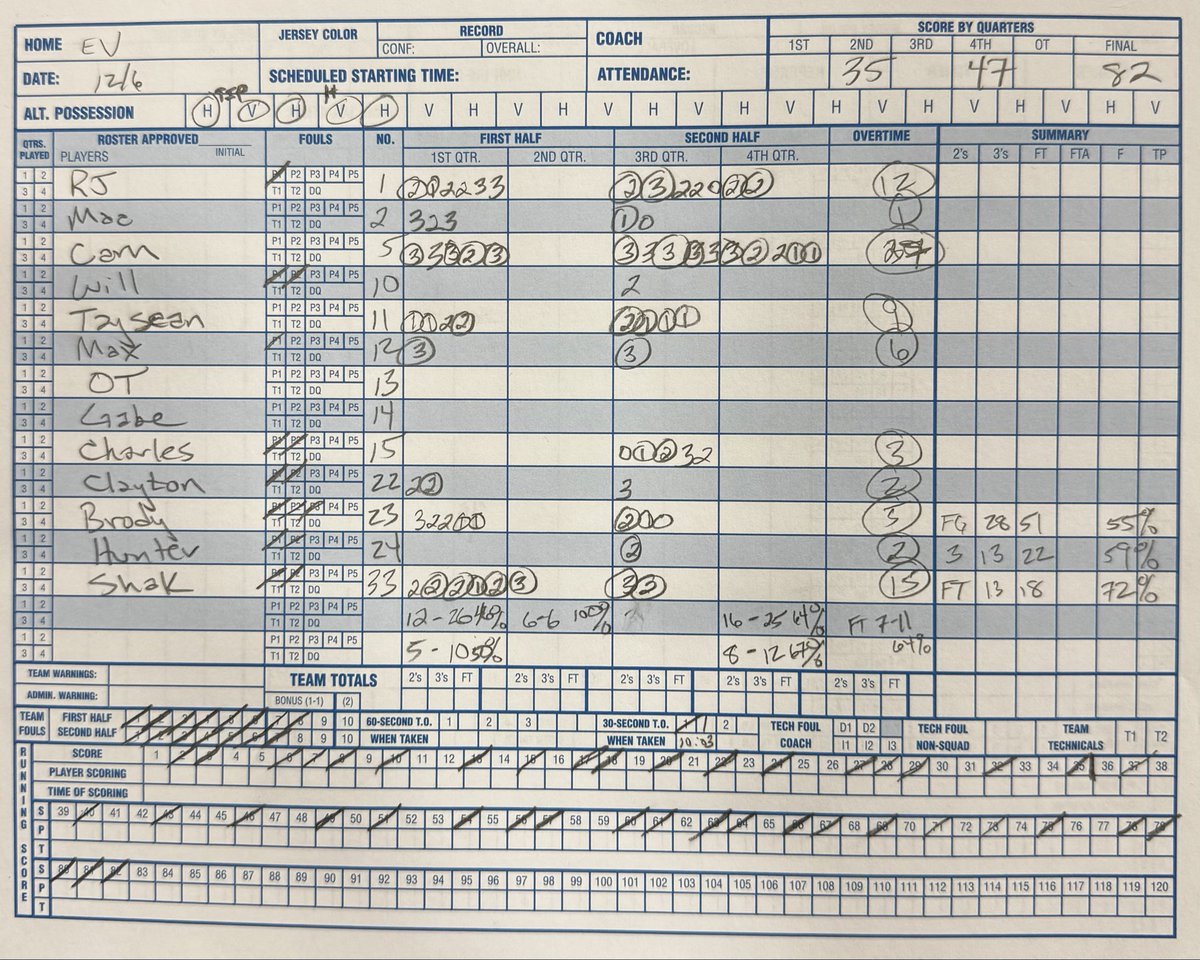 HOME EV JERSEY COLOR RECORD COACH SCORE BY QUARTERS
CONF: OVERALL: 1ST 2ND 3RD 4TH OT FINAL
DATE: 12/6 SCHEDULED STARTING TIME: ATTENDANCE: 35 47 82
TIP H
ALT. POSSESSION H V H V H V H V H V H V H V H V H V H V
QTRS. PLAYED ROSTER APPROVED INITIAL FOULS NO. FIRST HALF SECOND HALF OVERTIME SUMMARY
PLAYERS 1ST QTR. 2ND QTR. 3RD QTR. 4TH QTR. 2's 3's FT FTA F TP
1 2 P1 P2 P3 P4 P5
3 4 RJ T1 T2 DQ 1 12
1 2 P1 P2 P3 P4 P5
3 4 Mac T1 T2 DQ 2 323 10 1
1 2 P1 P2 P3 P4 P5
3 4 Cam T1 T2 DQ 5
1 2 P1 P2 P3 P4 P5
3 4 Will T1 T2 DQ 10 2
1 2 P1 P2 P3 P4 P5
3 4 Taysean T1 T2 DQ 11 1122 9
1 2 P1 P2 P3 P4 P5
3 4 Max T1 T2 DQ 12 3 3 6
1 2 P1 P2 P3 P4 P5
3 4 OT T1 T2 DQ 13
1 2 P1 P2 P3 P4 P5
3 4 Gabe T1 T2 DQ 14
1 2 P1 P2 P3 P4 P5
3 4 Charles T1 T2 DQ 15 01232 3
1 2 P1 P2 P3 P4 P5
3 4 Clayton T1 T2 DQ 22 22 3 2
1 2 P1 P2 P3 P4 P5
3 4 Brody T1 T2 DQ 23 200 FG 28 51 55%
1 2 P1 P2 P3 P4 P5
3 4 Hunter T1 T2 DQ 24 2 2 3 13 22 59%
1 2 P1 P2 P3 P4 P5
3 4 Shak T1 T2 DQ 33 33 15 FT 13 18 72%
1 2 P1 P2 P3 P4 P5
3 4 T1 T2 DQ 12-26 46% 6-6 100% 16-25 64% FT 7-11
1 2 P1 P2 P3 P4 P5 64%
3 4 T1 T2 DQ 5-10 50% 8-12 67%
TEAM WARNINGS: TEAM TOTALS 2's 3's FT 2's 3's FT 2's 3's FT 2's 3's FT 2's 3's FT
ADMIN. WARNING: BONUS (1-1) (2)
TEAM FOULS FIRST HALF 1 2 3 4 5 6 7 8 9 10 60-SECOND T.O. 1 2 3 30-SECOND T.O. 1 2 TECH FOUL COACH D1 D2 TECH FOUL NON-SQUAD TEAM TECHNICALS T1 T2
SECOND HALF 1 2 3 4 5 6 7 8 9 10 WHEN TAKEN WHEN TAKEN 10:03 I1 I2 I3
RUNNING SCORE
SCORE 1 2 3 4 5 6 7 8 9 10 11 12 13 14 15 16 17 18 19 20 21 22 23 24 25 26 27 28 29 30 31 32 33 34 35 36 37 38
PLAYER SCORING
TIME OF SCORING
S 39 40 41 42 43 44 45 46 47 48 49 50 51 52 53 54 55 56 57 58 59 60 61 62 63 64 65 66 67 68 69 70 71 72 73 74 75 76 77 78 79
P
T
S 80 81 82 83 84 85 86 87 88 89 90 91 92 93 94 95 96 97 98 99 100 101 102 103 104 105 106 107 108 109 110 111 112 113 114 115 116 117 118 119 120
P
T